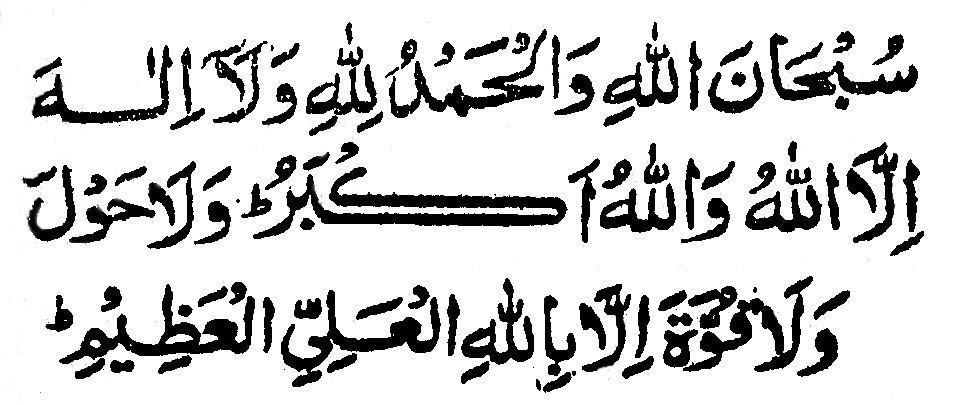 سُبْحَانَ اللّٰهِ وَالْحَمْدُ لِلّٰهِ وَلَآ اِلٰـهَ
اِلَّا اللّٰهُ وَاللّٰهُ اَکْبَرُ ؕ وَلَا حَوْلَ
وَلَا قُوَّةَ اِلَّا بِاللّٰهِ الْعَلِيِّ الْعَظِيْمِ ؕ